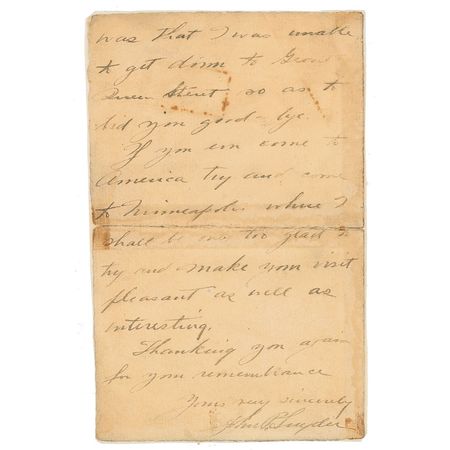 was that I was unable
to get down to Grove
Street so as to
bid you good-bye.
If you ever come to
America try and come
to Minneapolis where I
shall be only too glad to
try and make your visit
pleasant as well as
interesting.
Thanking you again
for your remembrance
Yours very sincerely
John P. Snyder